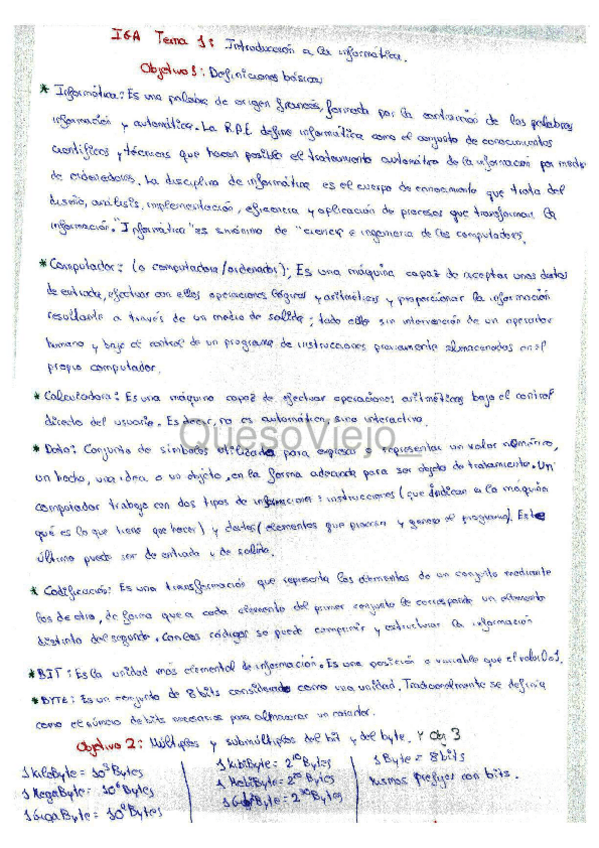 IGA Tema 1: Introducción a la informática.
Objetivo 1: Definiciones básicas
* Informática: Es una palabra de origen francés, formada por la contracción de las palabras
información y automática. La R.A.E define informática como el conjunto de conocimientos
científicos y técnicas que hacen posible el tratamiento automático de la información por medio
de ordenadores. La disciplina de informática es el cuerpo de conocimiento que trata del
diseño, análisis, implementación, eficiencia y aplicación de procesos que transforman la
información. "Informática" es sinónimo de "ciencia e ingeniería de los computadores.
* Computador: (o computadora/ordenador): Es una máquina capaz de aceptar unos datos
de entrada, efectuar con ellos operaciones lógicas y aritméticas y proporcionar la información
resultante a través de un medio de salida; todo ello sin intervención de un operador
humano y bajo el control de un programa de instrucciones previamente almacenadas en el
propio computador.
* Calculadora: Es una máquina capaz de efectuar operaciones aritméticas bajo el control
directo del usuario. Es decir, no es automática, sino interactiva.
QuesoViejo_
* Dato: Conjunto de símbolos utilizado para expresar o representar un valor numérico,
un hecho, una idea o un objeto, en la forma adecuada para ser objeto de tratamiento. Un
computador trabaja con dos tipos de informaciones: instrucciones (que indican a la máquina
qué es lo que tiene que hacer) y datos (elementos que procesan y genera el programa). Este
último puede ser de entrada y de salida.
* Codificación: Es una transformación que representa los elementos de un conjunto mediante
los de otro, de forma que a cada elemento del primer conjunto le corresponde un elemento
distinto del segundo. Con los códigos se puede comprimir y estructurar la información
* BIT: Es la unidad más elemental de información. Es una posición o variable que el valor 0 o 1.
* BYTE: Es un conjunto de 8 bits considerado como una unidad. Tradicionalmente se definía
como el número de bits necesarios para almacenar un caracter.
Objetivo 2: Múltiplos y submúltiplos del bit y del byte. Y Obj 3
1 KiloByte = 10³ Bytes
1 MegaByte = 10⁶ Bytes
1 GigaByte = 10⁹ Bytes
1 KibiByte = 2¹⁰ Bytes
1 MebiByte = 2²⁰ Bytes
1 GibiByte = 2³⁰ Bytes
1 Byte = 8 bits
mismos prefijos con bits.